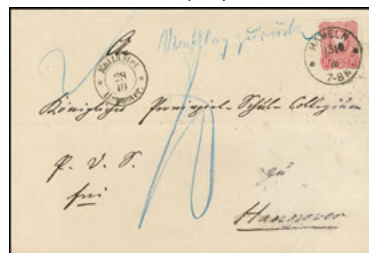 Umschlag zurück
An
HAMELN
7-8N
28
10
Königliches Provinzial-Schul-Collegium
P. V. S.
frei
zu
Hannover